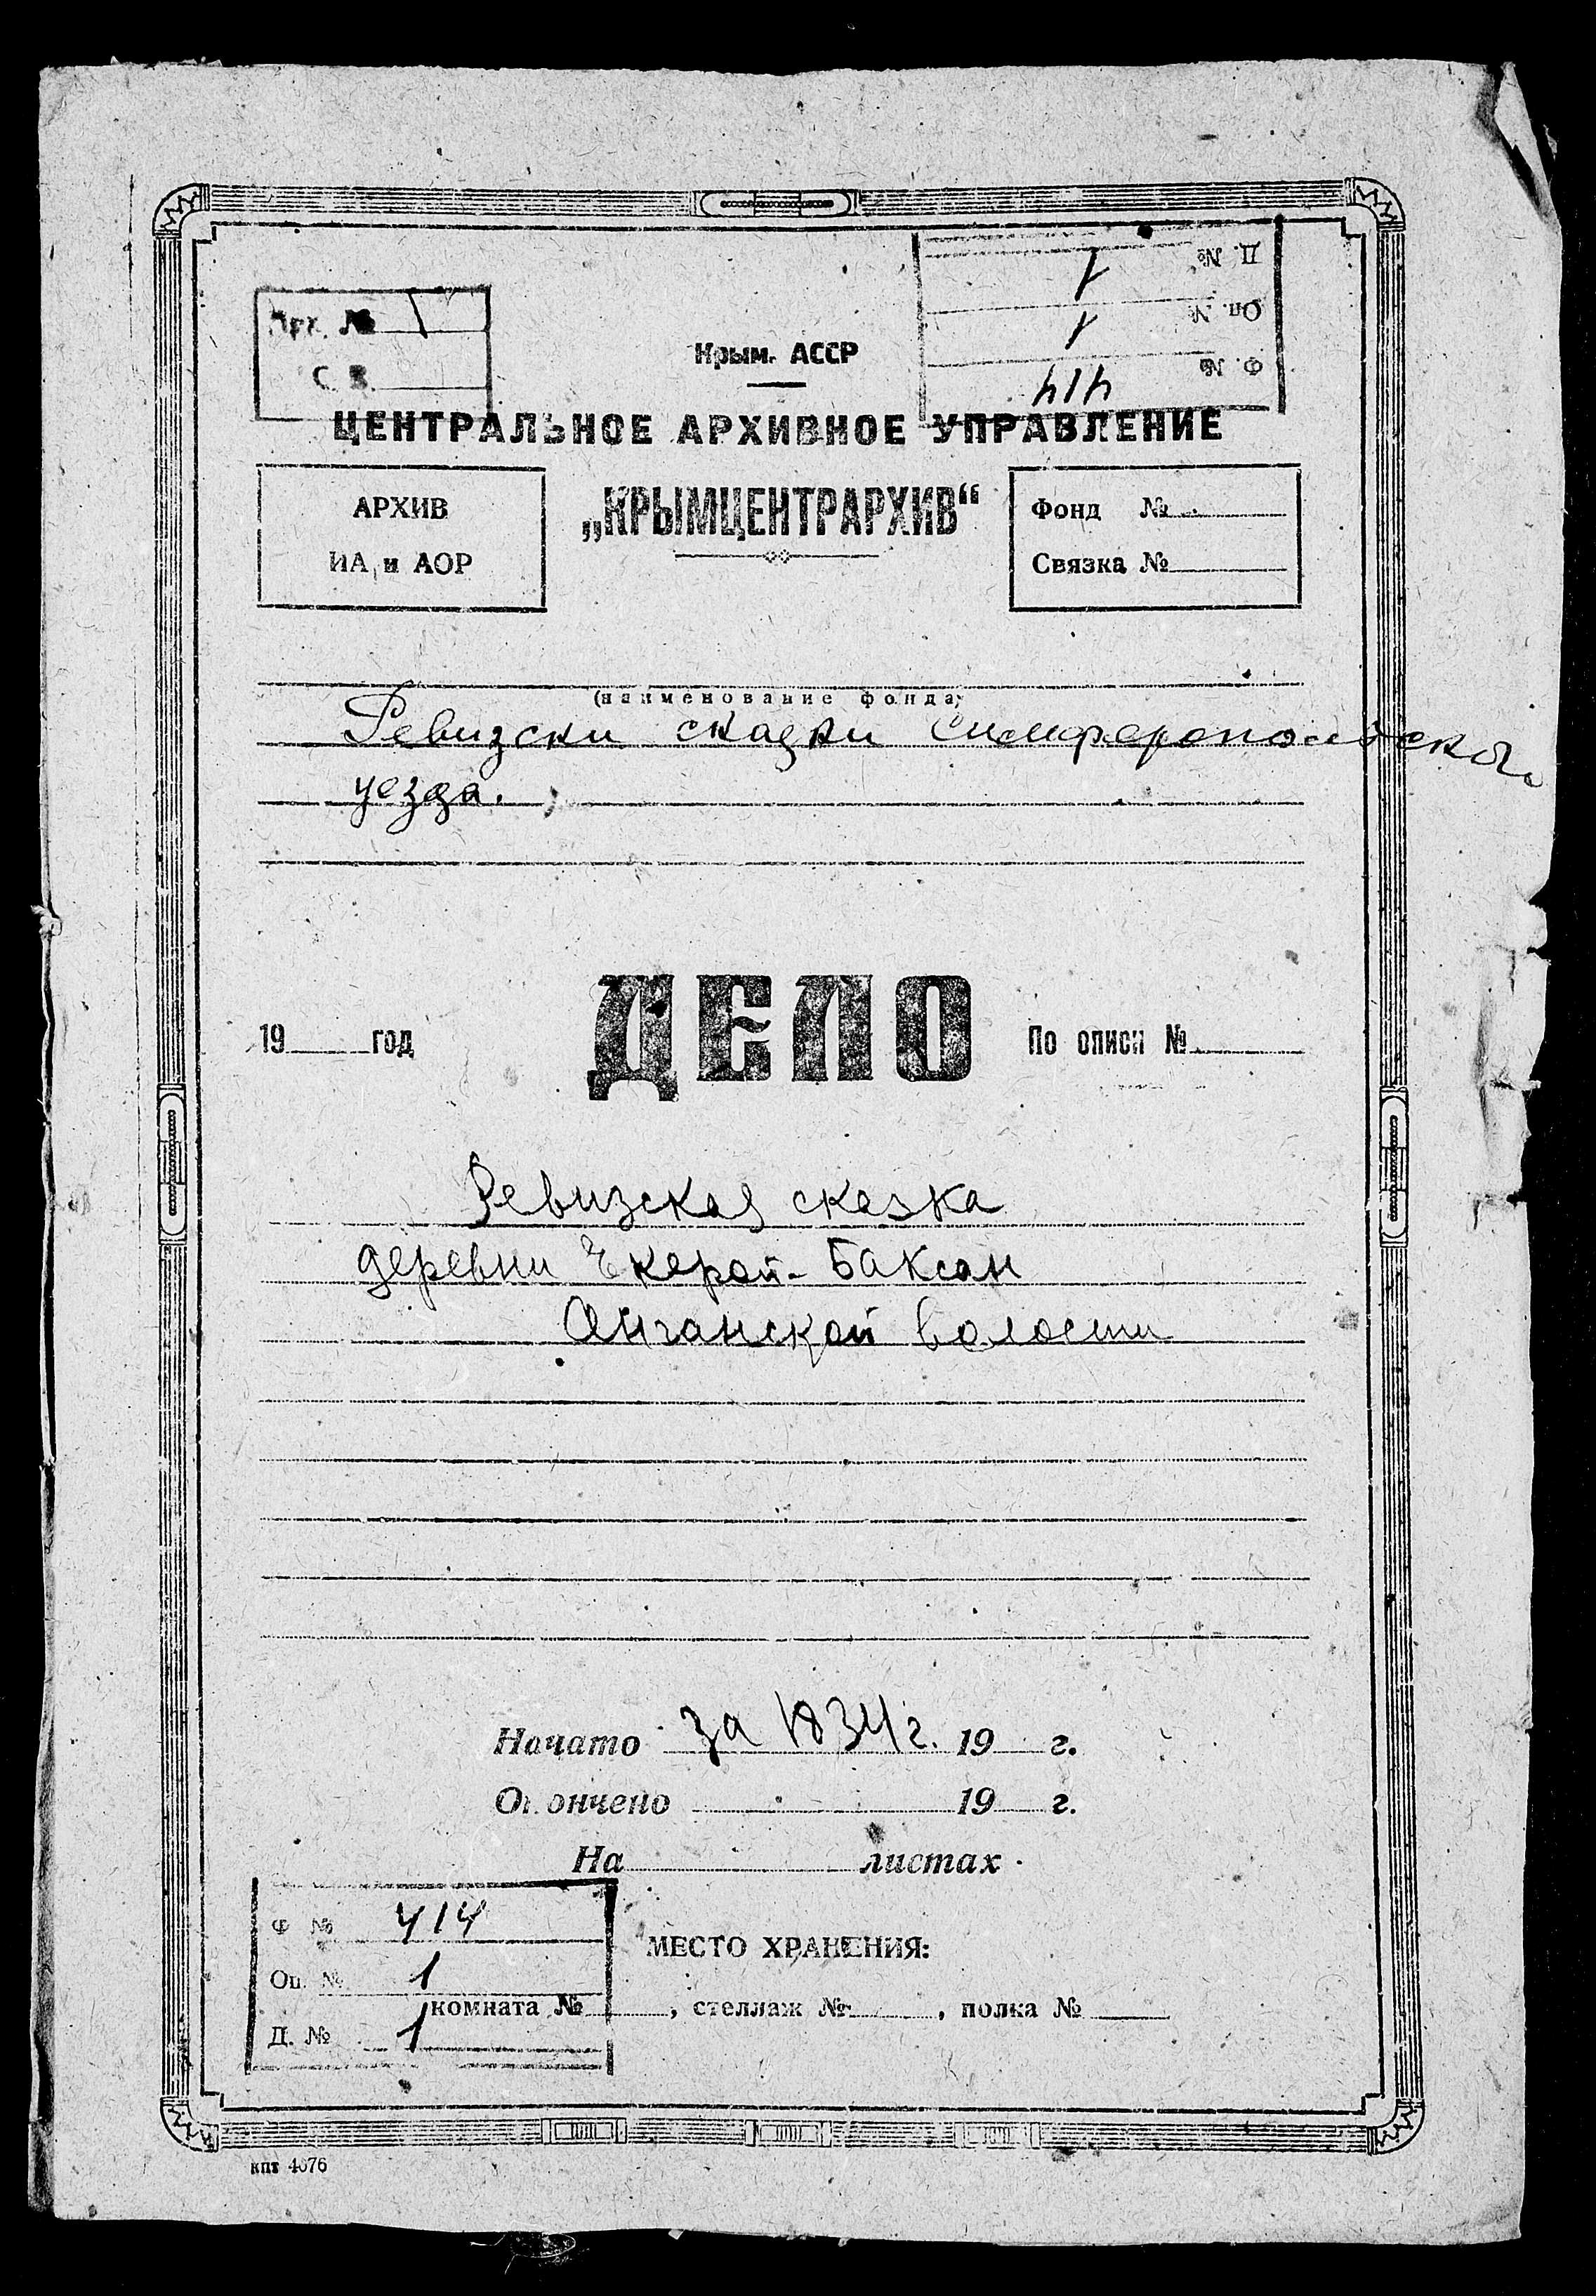 Арх. № 1
С. В.
Д. № 1
Оп. № 1
Ф. № 414
Крым. АССР
ЦЕНТРАЛЬНОЕ АРХИВНОЕ УПРАВЛЕНИЕ
„КРЫМЦЕНТРАРХИВ“
АРХИВ
ИА и АОР
Фонд №
Связка №
(наименование фонда)
Ревизски сказки Симферопольского
уезда.
19 год
ДЕЛО
По описи №
Ревизская сказка
деревни Баксан
волости
Начато за 1834 г. 19 г.
Окончено 19 г.
На листах
Ф № 414
Оп. № 1
Д. № 1
МЕСТО ХРАНЕНИЯ:
комната №, стеллаж №, полка №
кпт 4676